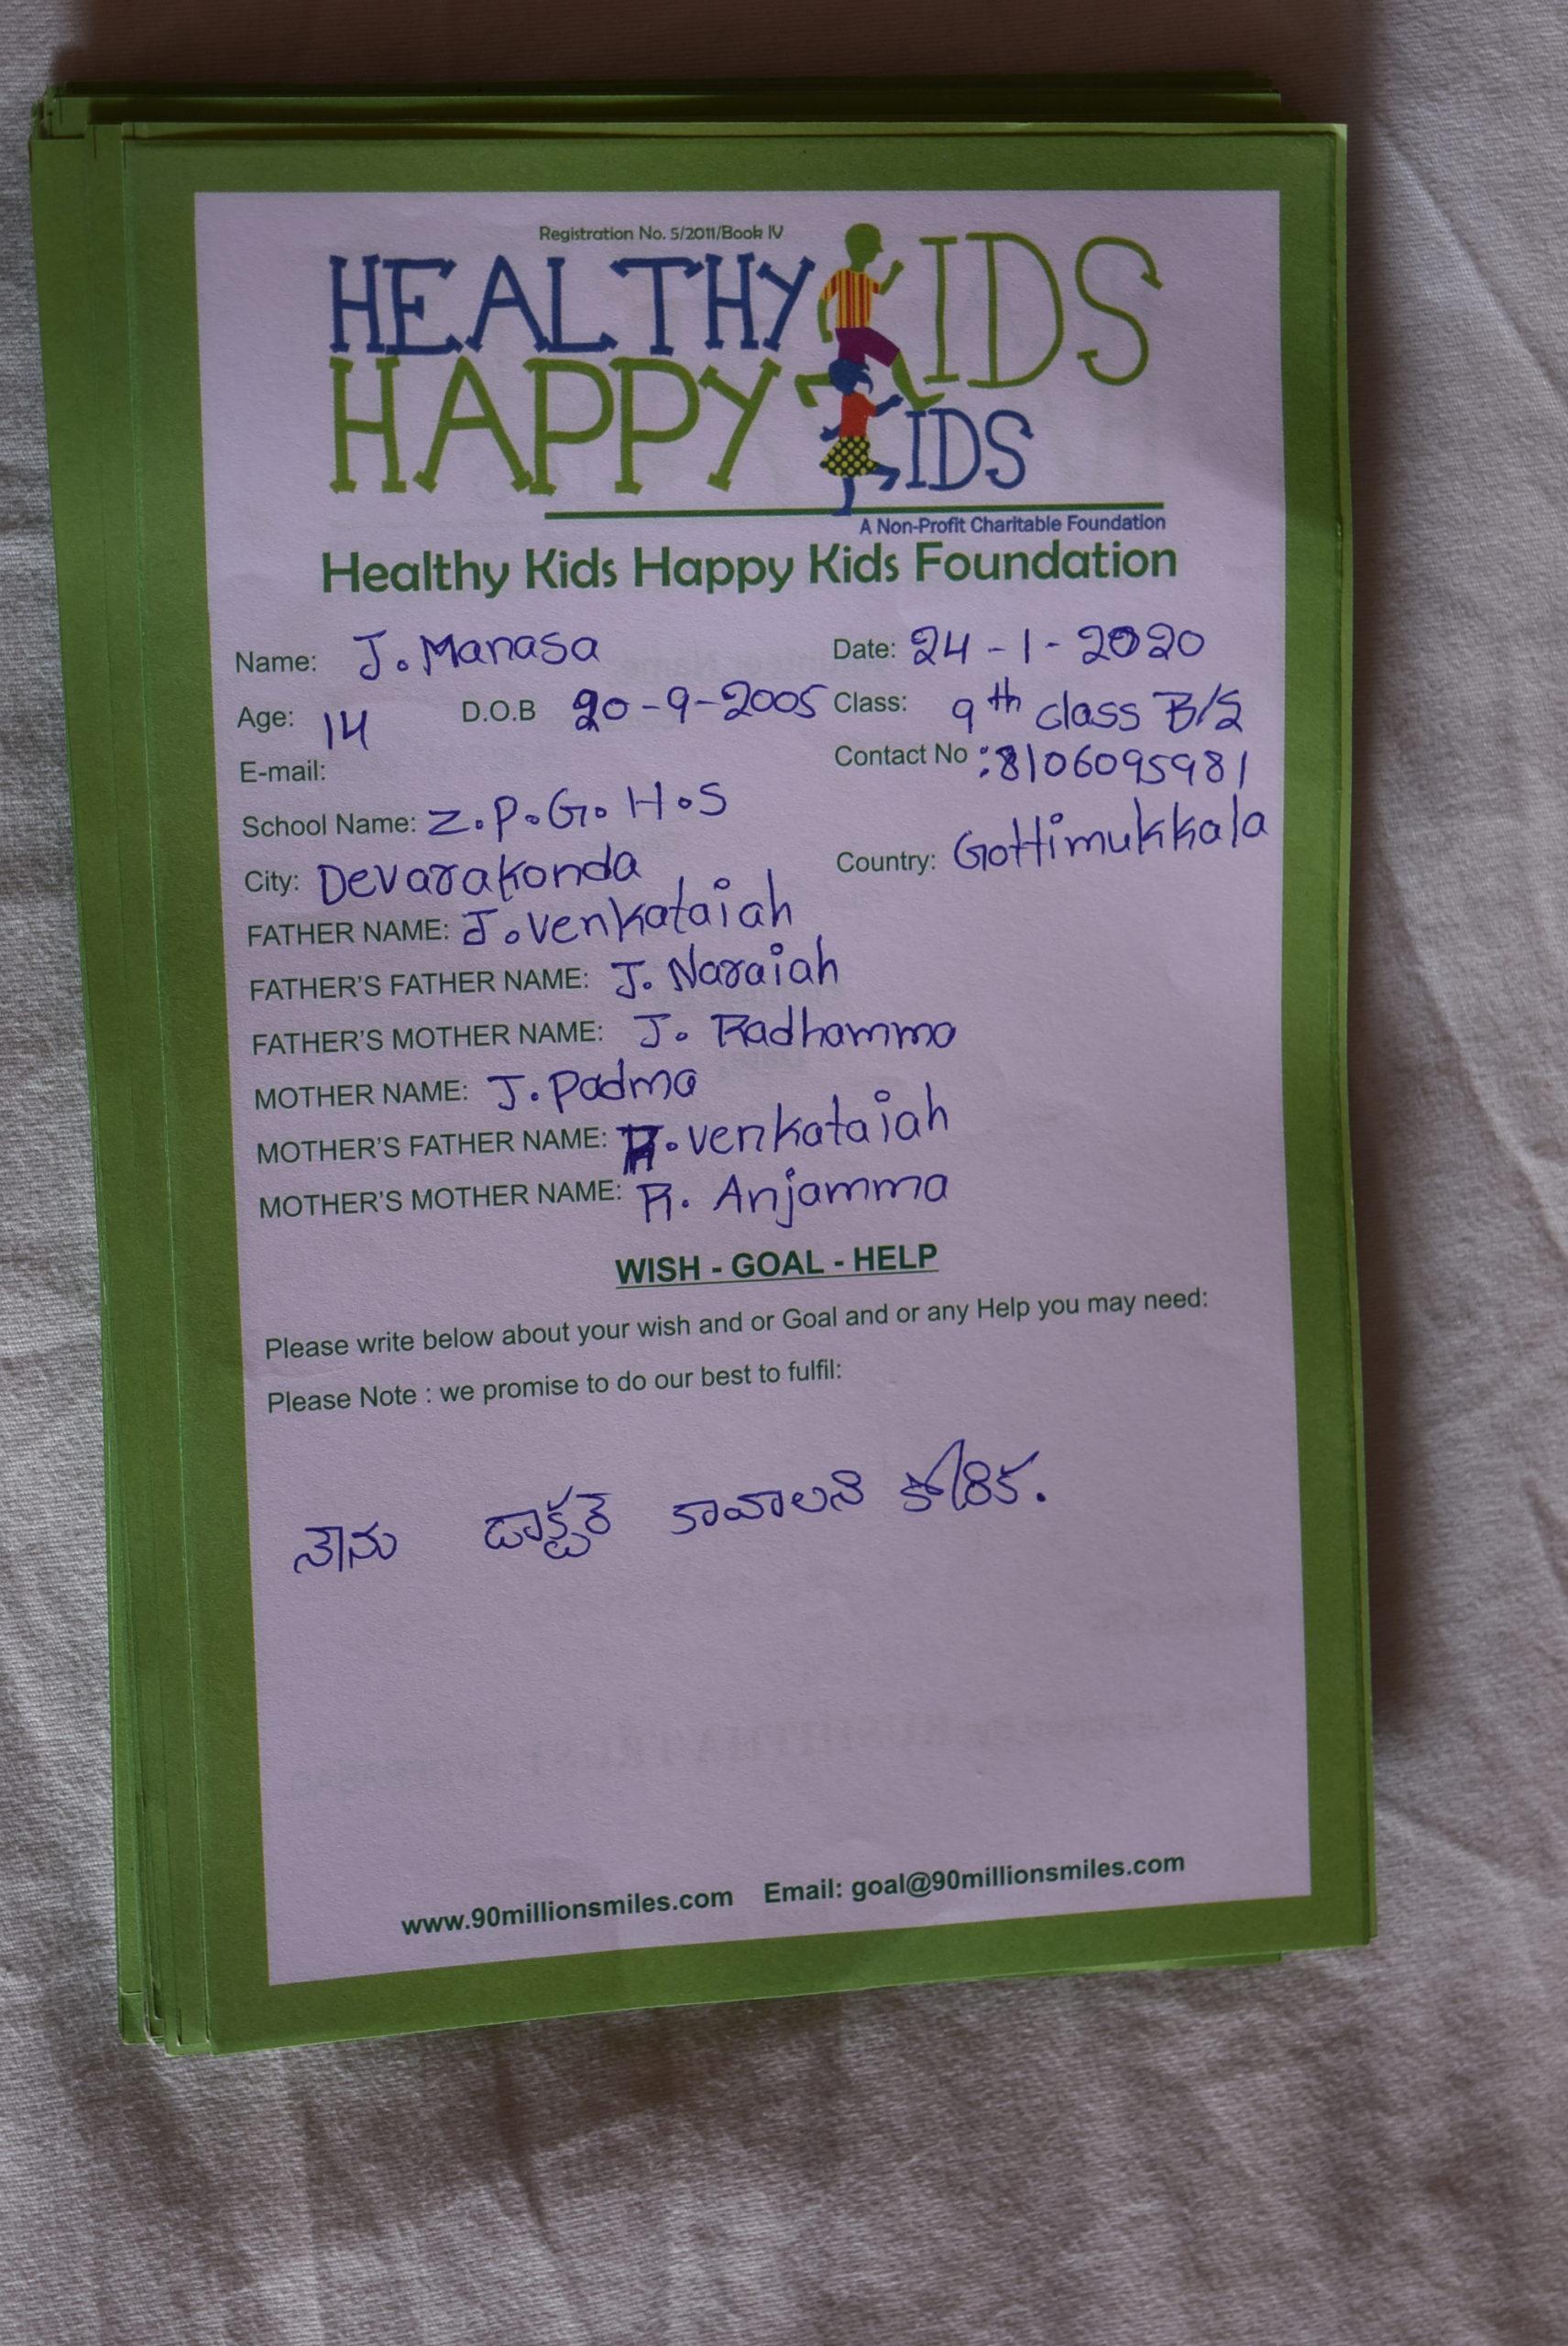 Registration No. 5/2011/Book IV
HEALTHY KIDS
HAPPY KIDS
A Non-Profit Charitable Foundation
Healthy Kids Happy Kids Foundation
Name: J. Manasa Date: 24-1-2020
Age: 14 D.O.B 20-9-2005 Class: 9th class B/S
E-mail: Contact No : 8106095981
School Name: Z.P.G.H.S
City: Devarakonda Country: Gottimukkala
FATHER NAME: J. venkataiah
FATHER'S FATHER NAME: J. Naraiah
FATHER'S MOTHER NAME: J. Radhamma
MOTHER NAME: J. Padma
MOTHER'S FATHER NAME: R. venkataiah
MOTHER'S MOTHER NAME: R. Anjamma
WISH - GOAL - HELP
Please write below about your wish and or Goal and or any Help you may need:
Please Note : we promise to do our best to fulfil:
నేను డాక్టర్ కావాలని కోరిక.
www.90millionsmiles.com Email: goal@90millionsmiles.com